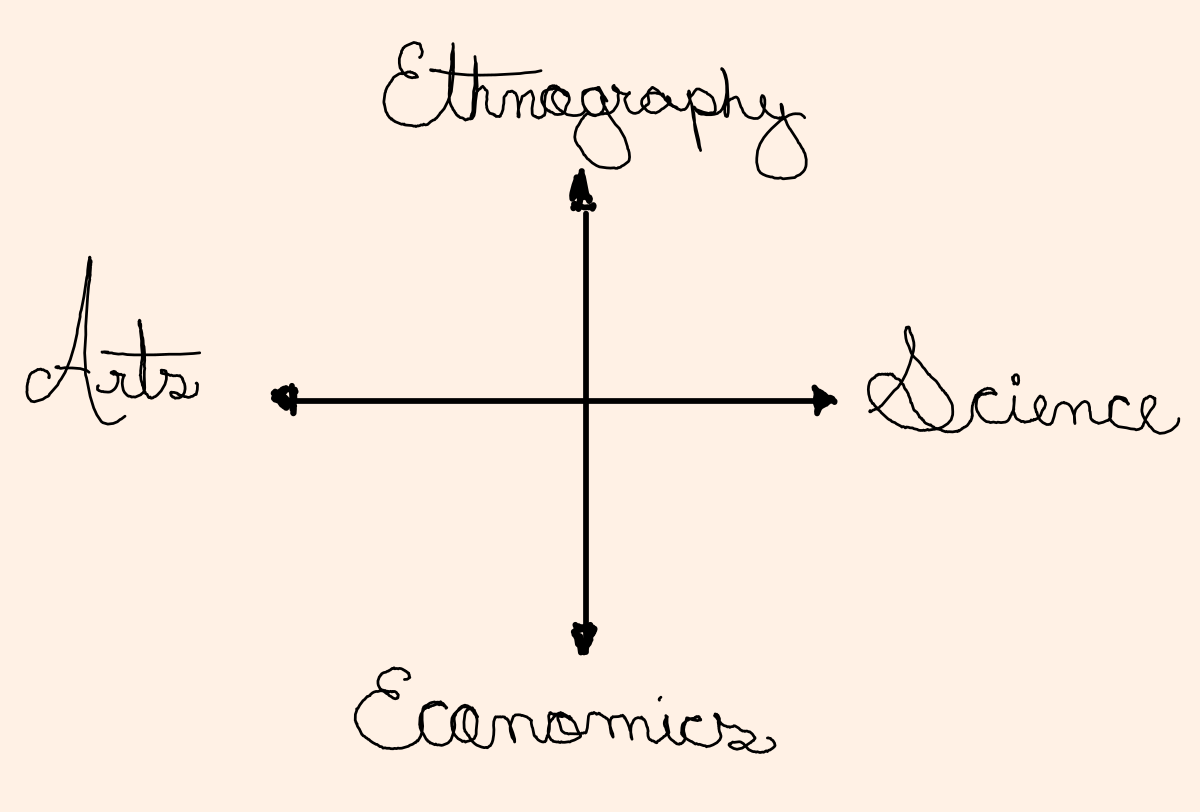 Ethnography
Arts
Science
Economics